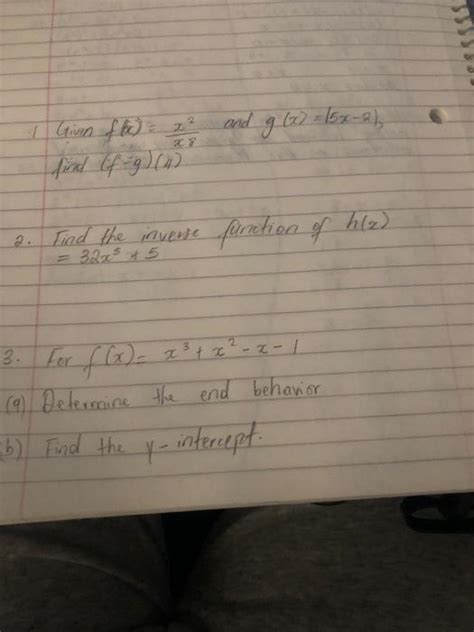 1 Given f(x) = x²/x8 and g(x) = |5x-2|,
find (f-g)(4)
2. Find the inverse function of h(x)
= 32x⁵ + 5
3. For f(x) = x³ + x² - x - 1
(a) Determine the end behavior
(b) Find the y-intercept.